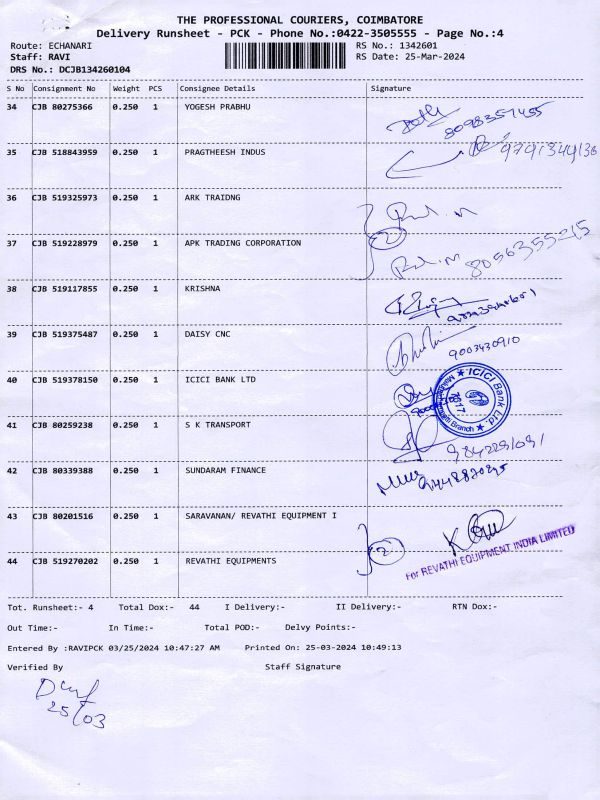 THE PROFESSIONAL COURIERS, COIMBATORE
Delivery Runsheet - PCK - Phone No.:0422-3505555 - Page No.:4
Route: ECHANARI RS No.: 1342601
Staff: RAVI RS Date: 25-Mar-2024
DRS No.: DCJB134260104
S No Consignment No Weight PCS Consignee Details Signature
34 CJB 80275366 0.250 1 YOGESH PRABHU
8098357455
35 CJB 518843959 0.250 1 PRAGTHEESH INDUS
9791344138
36 CJB 519325973 0.250 1 ARK TRAIDNG
37 CJB 519228979 0.250 1 APK TRADING CORPORATION
2
8056355215
38 CJB 519117855 0.250 1 KRISHNA
39 CJB 519375487 0.250 1 DAISY CNC
9003430910
40 CJB 519378150 0.250 1 ICICI BANK LTD
ICICI Bank Ltd. Branch
41 CJB 80259238 0.250 1 S K TRANSPORT
9842291091
42 CJB 80339388 0.250 1 SUNDARAM FINANCE
43 CJB 80201516 0.250 1 SARAVANAN/ REVATHI EQUIPMENT I
2
For REVATHI EQUIPMENT INDIA LIMITED
44 CJB 519270202 0.250 1 REVATHI EQUIPMENTS
Tot. Runsheet:- 4 Total Dox:- 44 I Delivery:- II Delivery:- RTN Dox:-
Out Time:- In Time:- Total POD:- Delvy Points:-
Entered By :RAVIPCK 03/25/2024 10:47:27 AM Printed On: 25-03-2024 10:49:13
Verified By Staff Signature
25/03